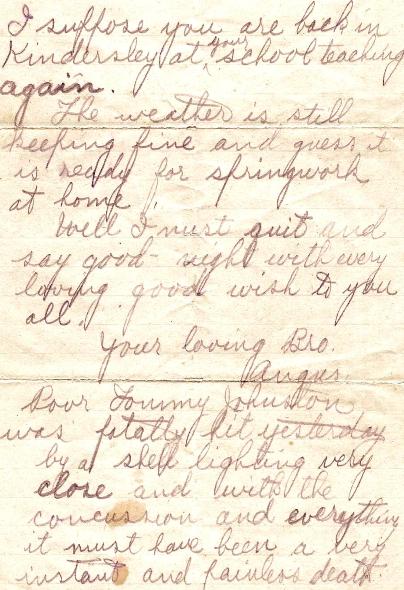 I suppose you are back in
Kindersley at your school teaching
again.
The weather is still
keeping fine and guess it
is ready for springwork
at home.
Well I must quit and
say good-night with every
loving good wish to you
all.
Your loving Bro.
Angus.
Poor Tommy Johnston
was fatally hit yesterday
by a shell lighting very
close and with the
concussion and everything
it must have been a very
instant and painless death.